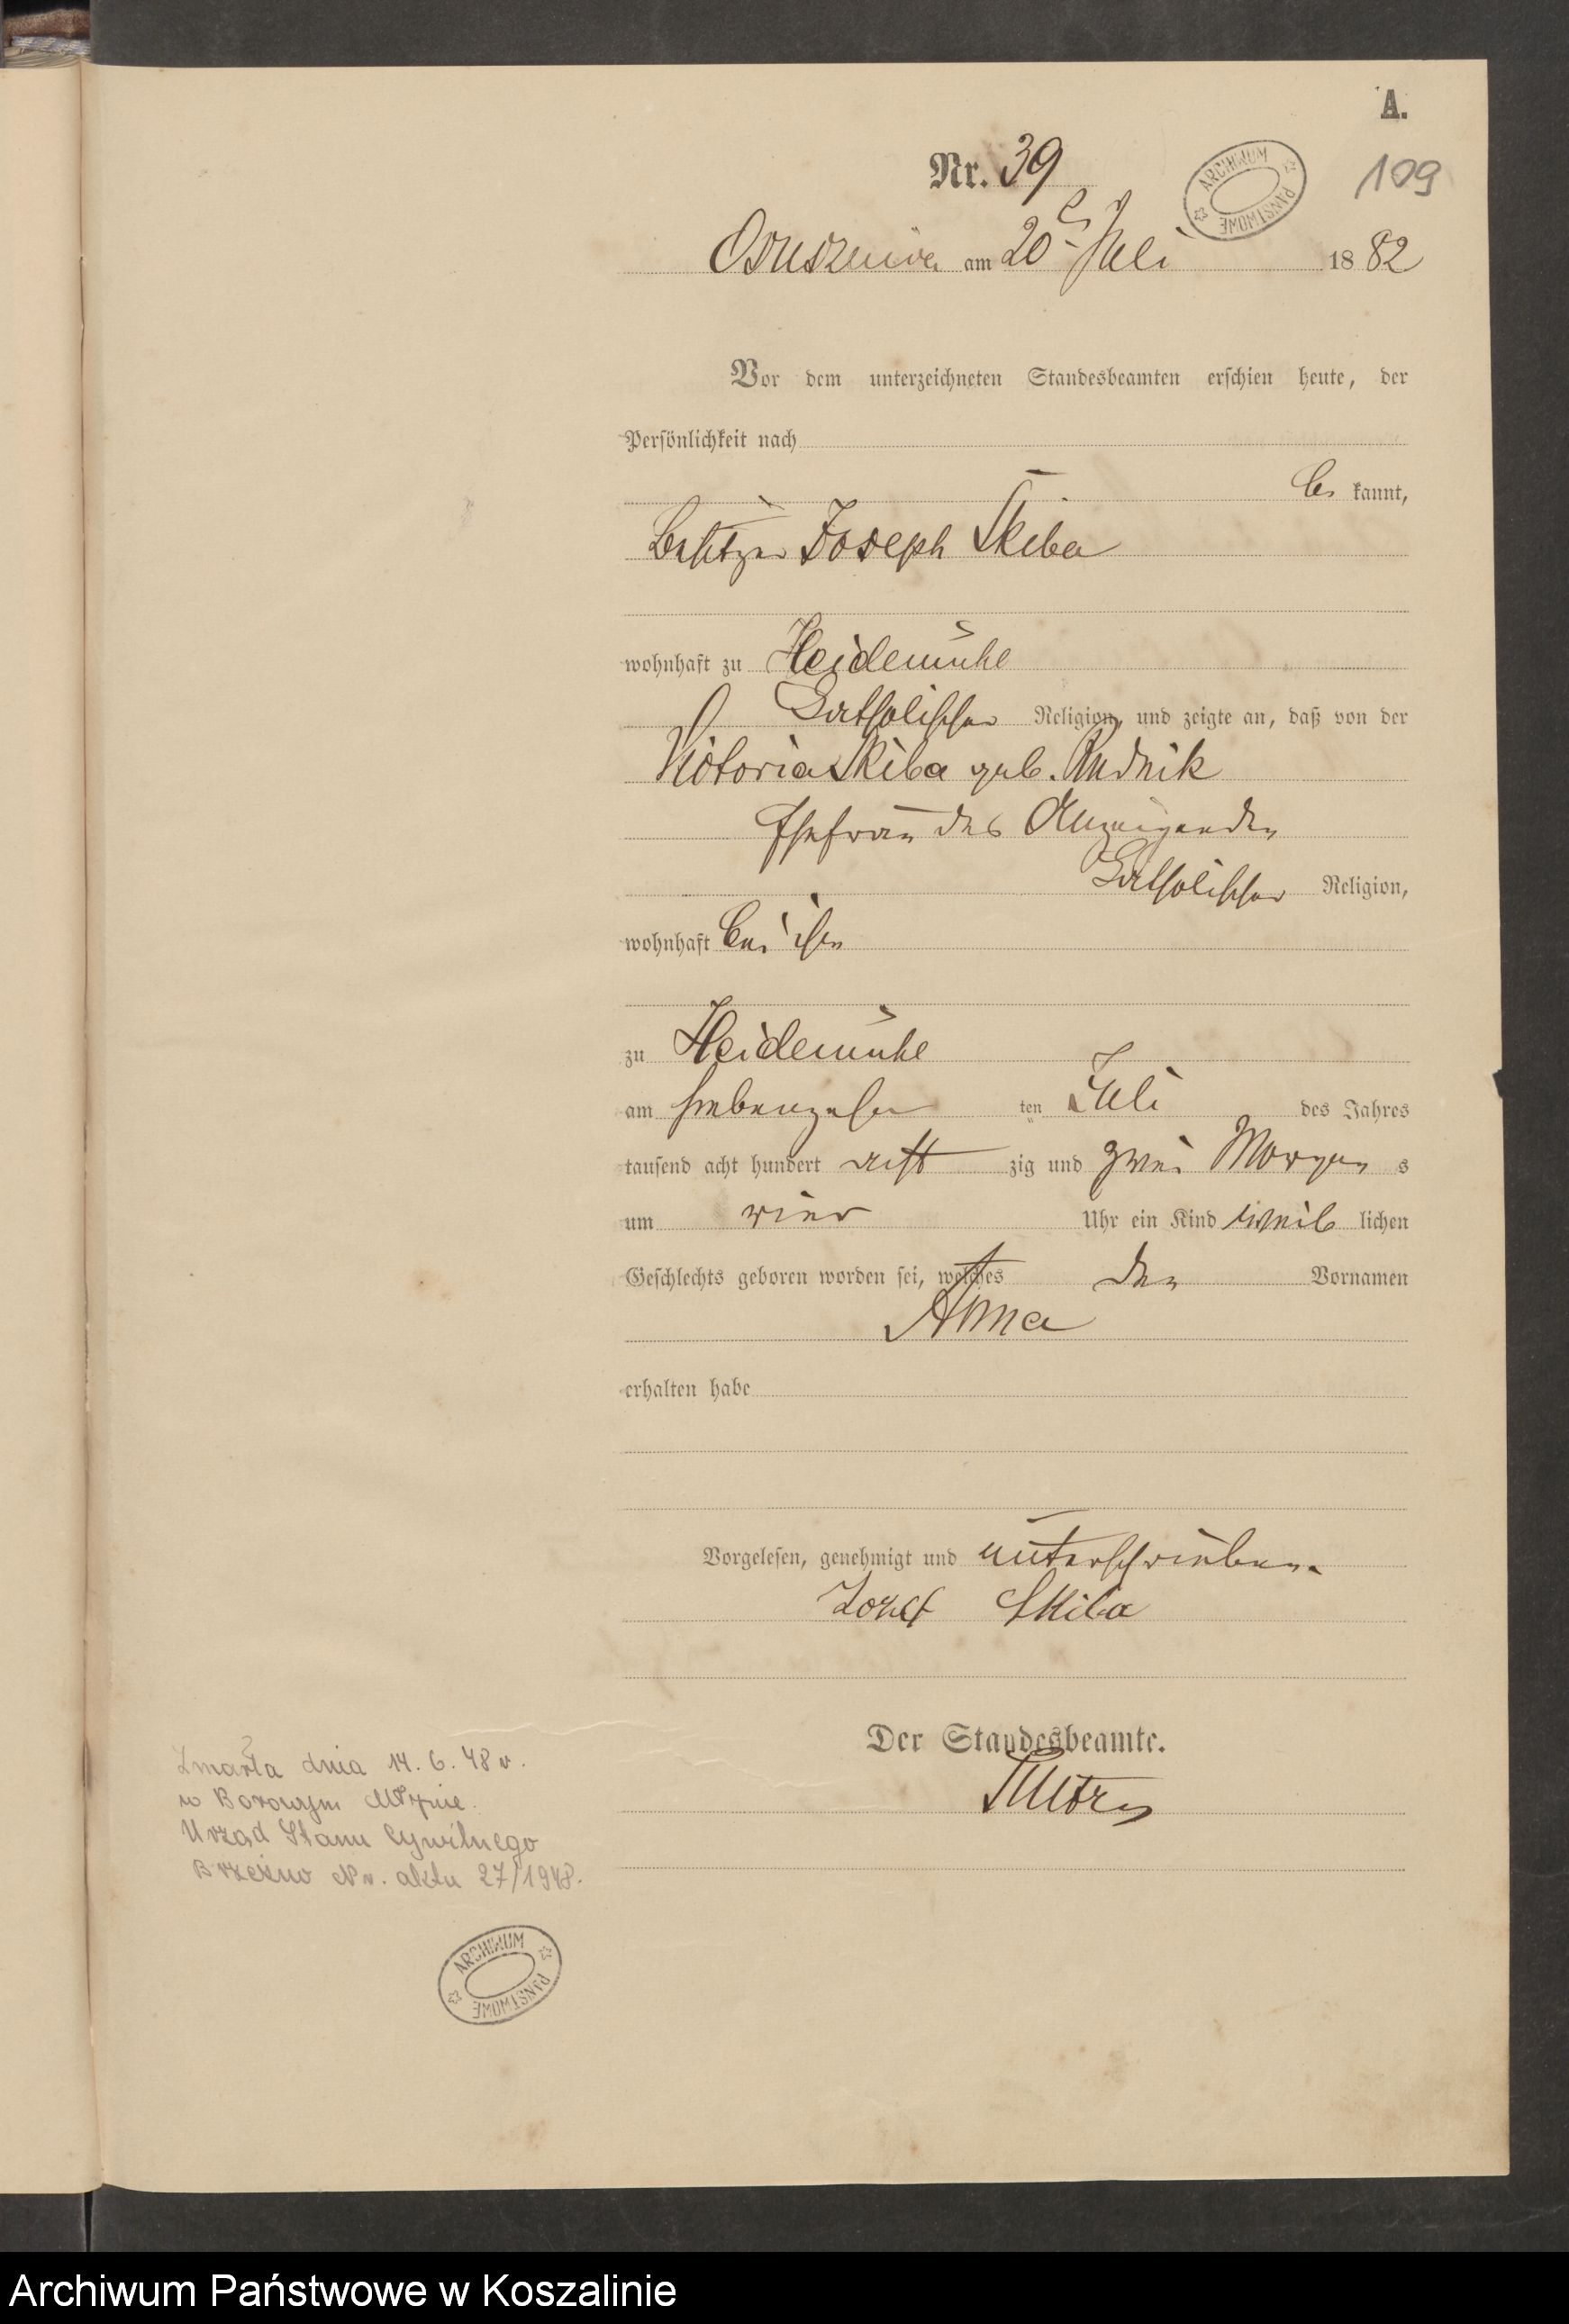 A.
Nr. 39
109
ARCHIWUM PAŃSTWOWE
Osuszniza am 20 Juli 1882
Vor dem unterzeichneten Standesbeamten erschien heute, der
Persönlichkeit nach
be kannt,
Besitzer Joseph Skiba
wohnhaft zu Heidemühl
katholischer Religion, und zeigte an, daß von der
Victoria Skiba geb. Rudnik
Ehefrau des Anzeigenden
katholischer Religion,
wohnhaft bei ihm
zu Heidemühl
am siebenzehn ten Juli des Jahres
tausend acht hundert acht zig und zwei Morgen s
um vier Uhr ein Kind weib lichen
Geschlechts geboren worden sei, welches den Vornamen
Anna
erhalten habe
Vorgelesen, genehmigt und unterschrieben.
Jozef Skiba
Der Standesbeamte.
Zmarła dnia 14. 6. 48 r.
w Borowym Młynie.
Urząd Stanu Cywilnego
Brzeźno Nr. aktu 27/1948.
ARCHIWUM PAŃSTWOWE
Archiwum Państwowe w Koszalinie